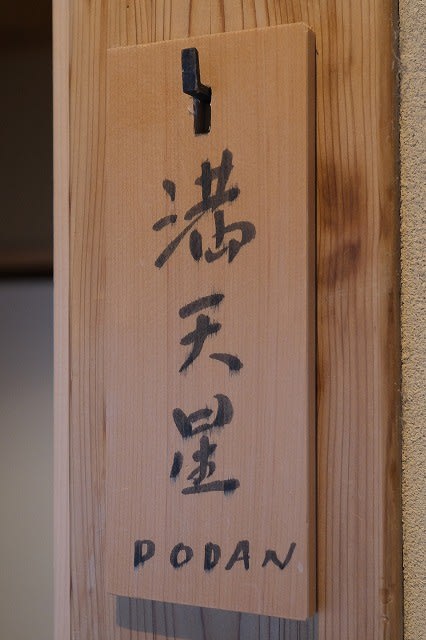 満天星
DODAN